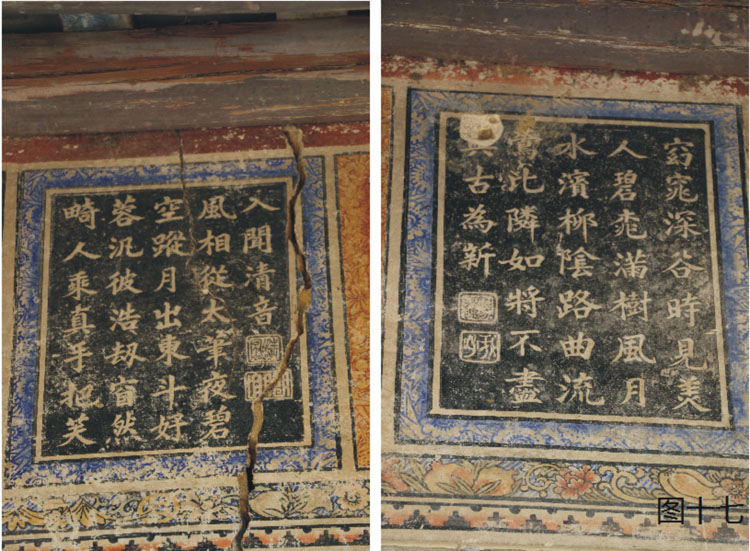 畸人乘真手把芙
蓉汎彼浩劫窅然
空蹤月出東斗好
風相從太華夜碧
人聞清音
窈窕深谷時見美
人碧桃滿樹風月
水濱柳陰路曲流
鶯比隣如將不盡
與古為新
图十七